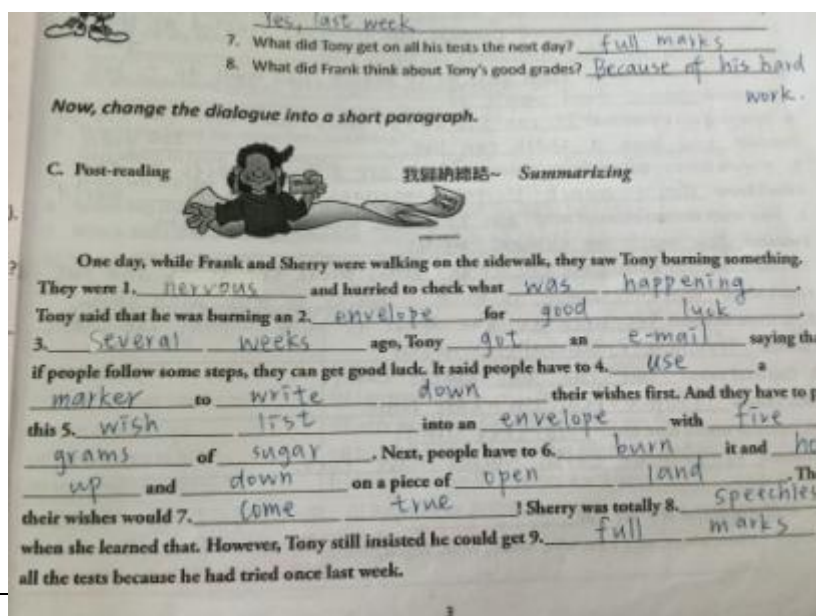 Yes, last week
7. What did Tony get on all his tests the next day? full marks
8. What did Frank think about Tony's good grades? Because of his hard
work.
Now, change the dialogue into a short paragraph.
C. Post-reading 我歸納總結~ Summarizing
One day, while Frank and Sherry were walking on the sidewalk, they saw Tony burning something.
They were 1. nervous and hurried to check what was happening.
Tony said that he was burning an 2. envelope for good luck.
3. Several weeks ago, Tony got an e-mail saying tha
if people follow some steps, they can get good luck. It said people have to 4. use a
marker to write down their wishes first. And they have to p
this 5. wish list into an envelope with five
grams of sugar. Next, people have to 6. burn it and ho
up and down on a piece of open land. Th
their wishes would 7. come true! Sherry was totally 8. speechles
when she learned that. However, Tony still insisted he could get 9. full marks
all the tests because he had tried once last week.
3